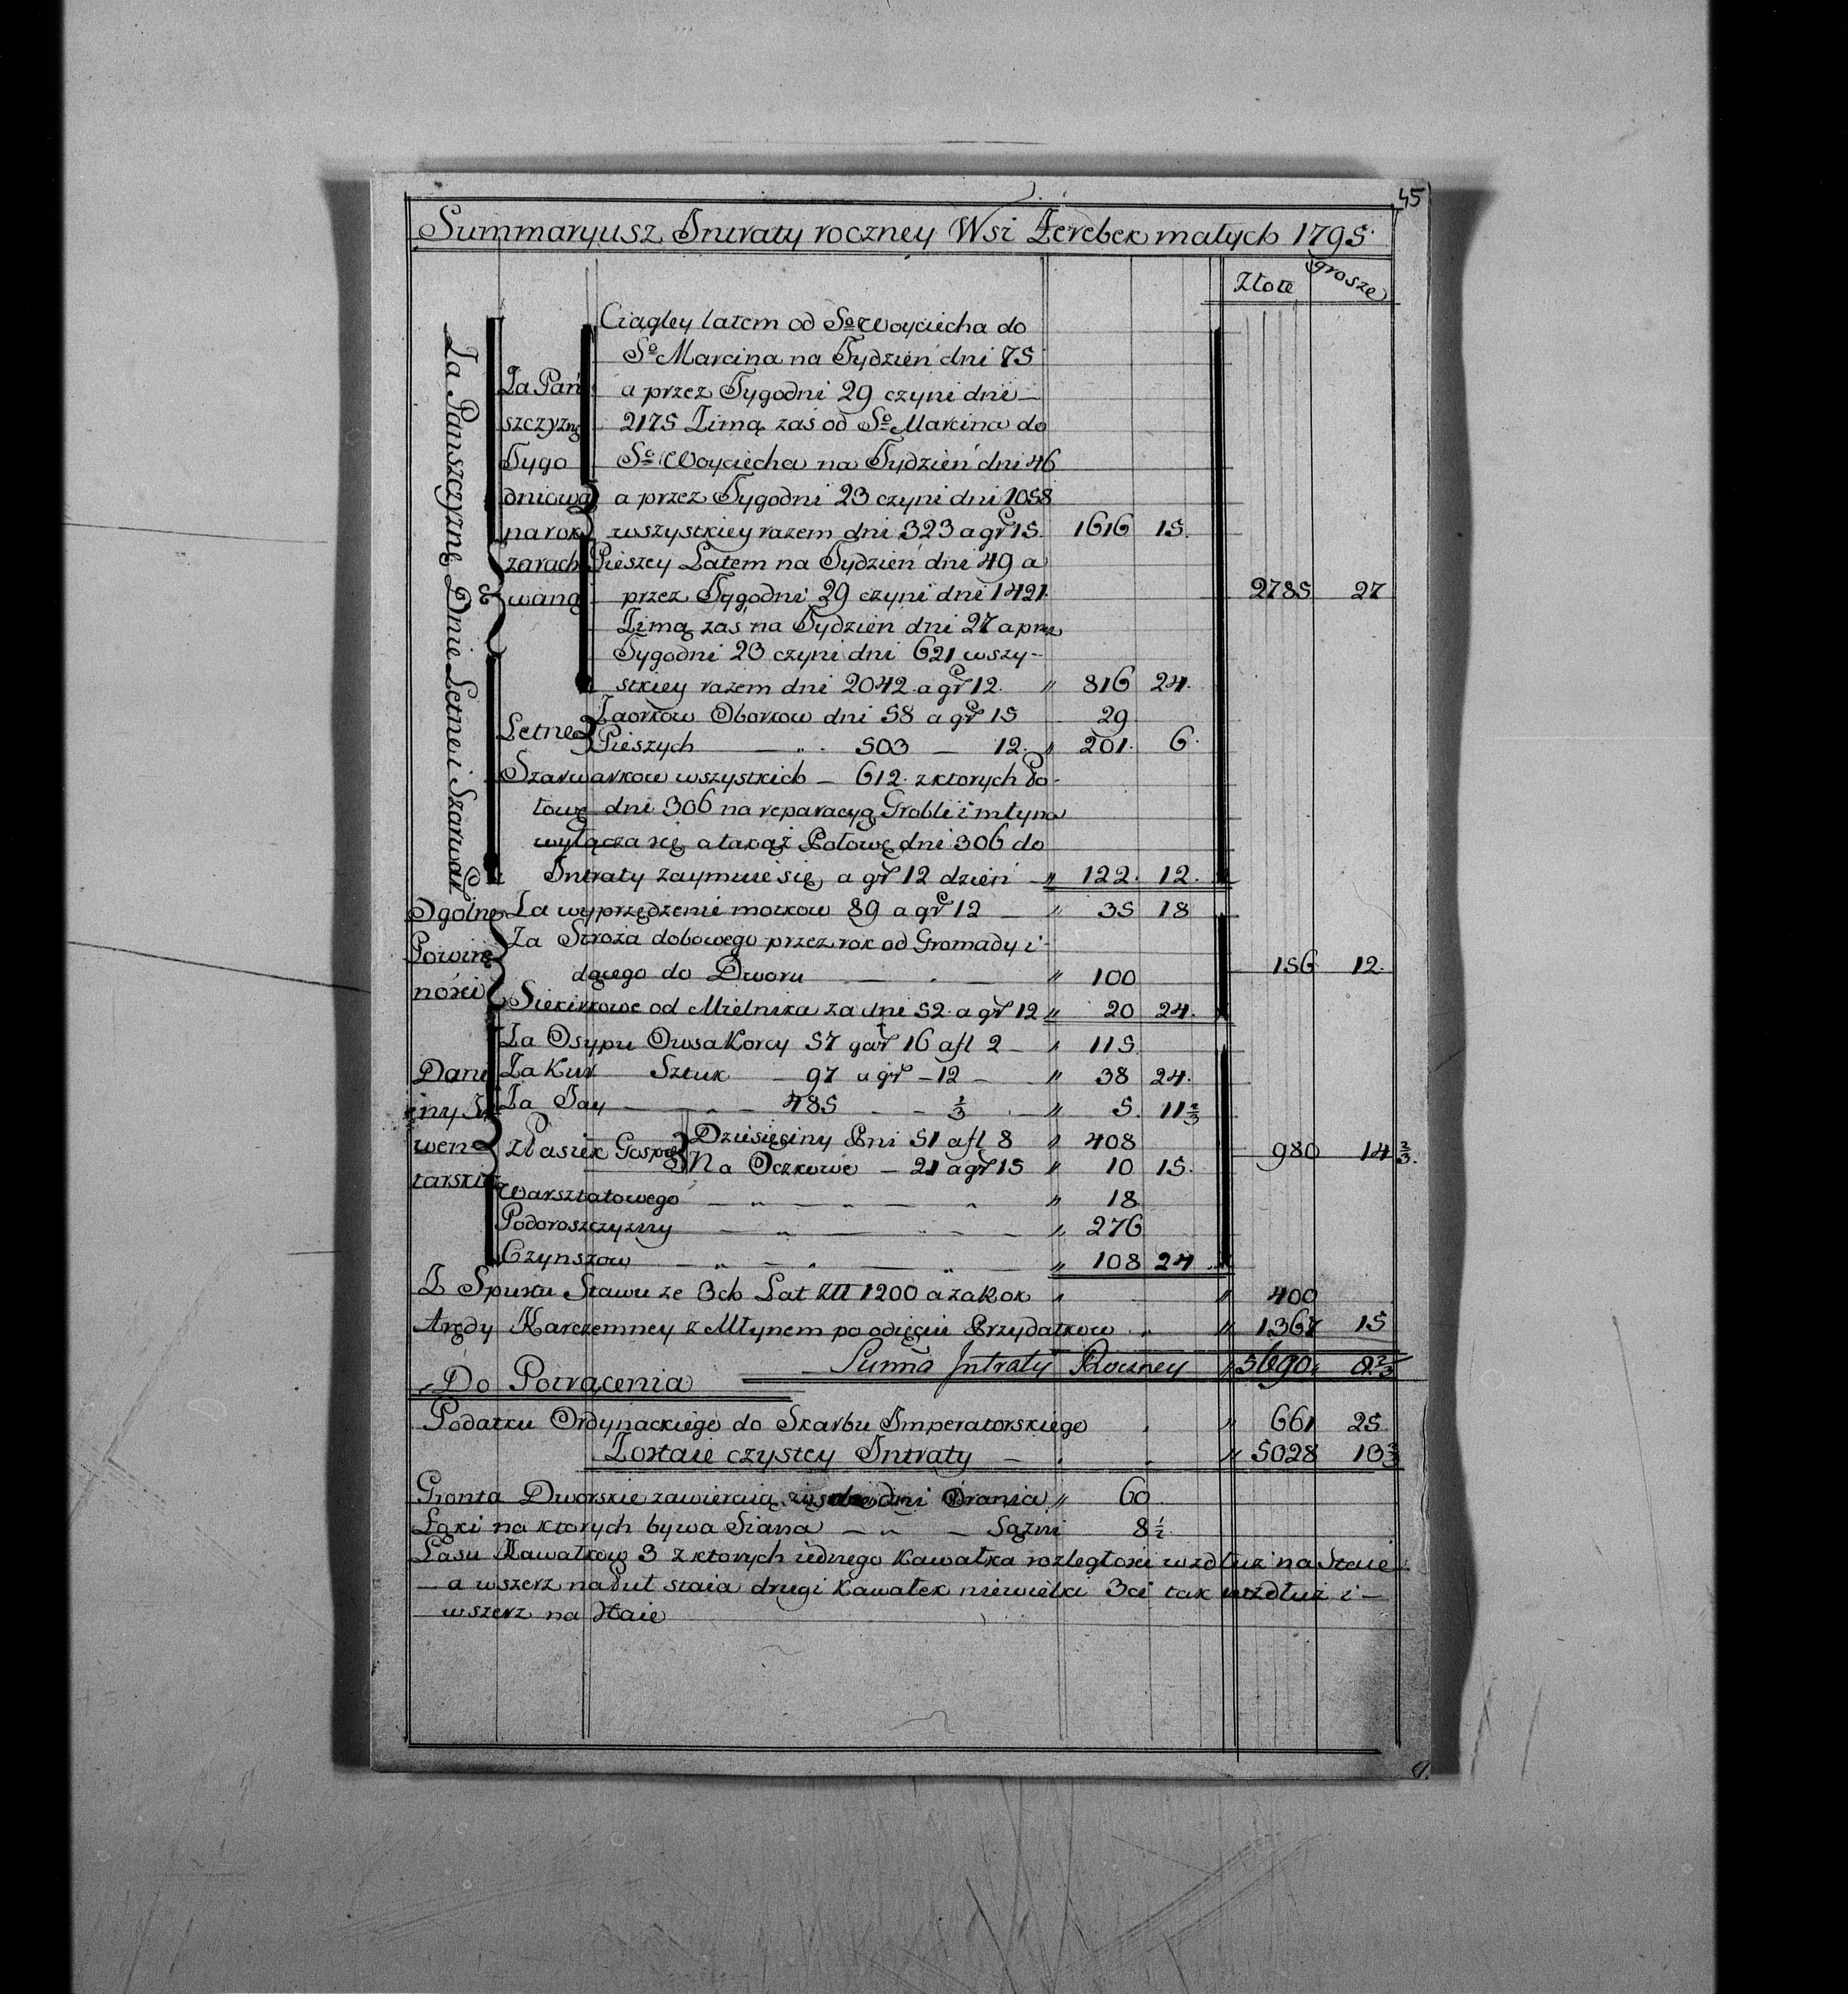 45
Summaryusz Intraty roczney Wsi Żerebek małych 1795
Złote grosze
Za Panszczyznę Dnie Letne i Szarwark
Za Pań
szczyznę
Tygo
dniową
na rok
zarach
waną
Ciągley latem od So Woyciecha do
So Marcina na Tydzień dni 75
a przez Tygodni 29 czyni dni —
2175 Zimą zaś od So Marcina do
So Woyciecha na Tydzień dni 46
a przez Tygodni 23 czyni dni 1058
wszystkiey razem dni 323 a gr 15. 1616 15.
Pieszey Latem na Tydzień dni 49 a
przez Tygodni 29 czyni dni 1421 2785 27
Zimą zaś na Tydzien dni 27 a prze
Tygodni 23 czyni dni 621 wszy-
stkiey razem dni 2042. a gr 12. " 816 24.
Letne Zaorkow Oborkow dni 58 a gr 15 29
Pieszych — 503 — 12. " 201. 6.
Szarwarkow wszystkich — 612. z ktorych Po-
łowę dni 306 na reparacyą Grobli i młyna
wyłącza się a takąż Połowę dni 306 do
Intraty zaymuie się a gr 12 dzień — " 122. 12.
Ogólne
Powin
ności
Za wyprzędzenie motkow 89 a gr 12 — " 35 18
Za Stroża dobowego przez rok od Gromady i-
dącego do Dworu — " 100 156 12.
Siekirkowe od Mielnika za dni 52. a gr 12 " 20 24.
Dani
ny In
wen
tarskie
Za Osypu Owsa Korcy 57 gar 16 a fl 2 — " 115
Za Kur Sztuk — 97 a gr — 12 — " 38 24.
Za Jay — 485 — 1/3 — " 5. 11 2/3
z Pasiek Gospod Dziesięciny Pni 51 a fl 8 " 408
Na Oczkowe — 21 a gr 15 " 10 15. 980 14 2/3.
Warsztatowego — " 18
Podoroszczyzny — " 276
Czynszow — " 108 24
Z Spustu Stawu ze 3ch Lat Złł 1200 a za Rok " " 400
Arędy Karczemney z Młynem po odięciu Przydatkow " 1367 15
Summa Intraty Roczney " 5690 8 2/3
Do Potrącenia
Podatku Ordynackiego do Skarbu Imperatorskiego " 661 25.
Zostaie czystey Intraty — " 5028 13 2/3
Gronta Dworskie zawieraią dni Orania " 60
Łąki na ktorych bywa Siana — Sążni 8 1/2.
Lasu Kawałkow 3 z ktorych iednego Kawałka rozległości wzdłuż na Staie
— a wszerz na Puł staia drugi Kawałek niewielki 3ci tak wzdłuż i —
wszerz na Staie